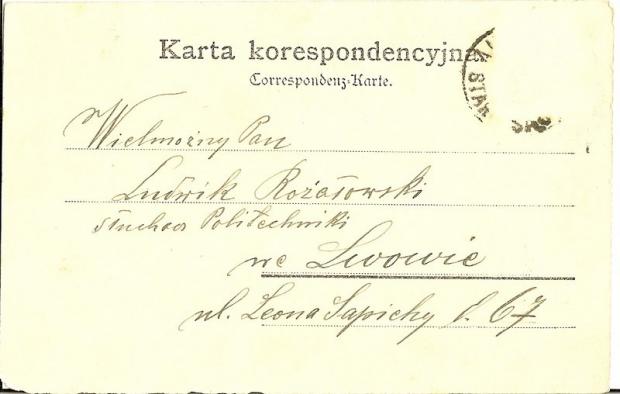 Karta korespondencyjna
Correspondenz-Karte.
STAR
Wielmożny Pan
Ludwik Rożałowski
słuchacz Politechniki
we Lwowie
ul. Leona Sapiehy l. 67